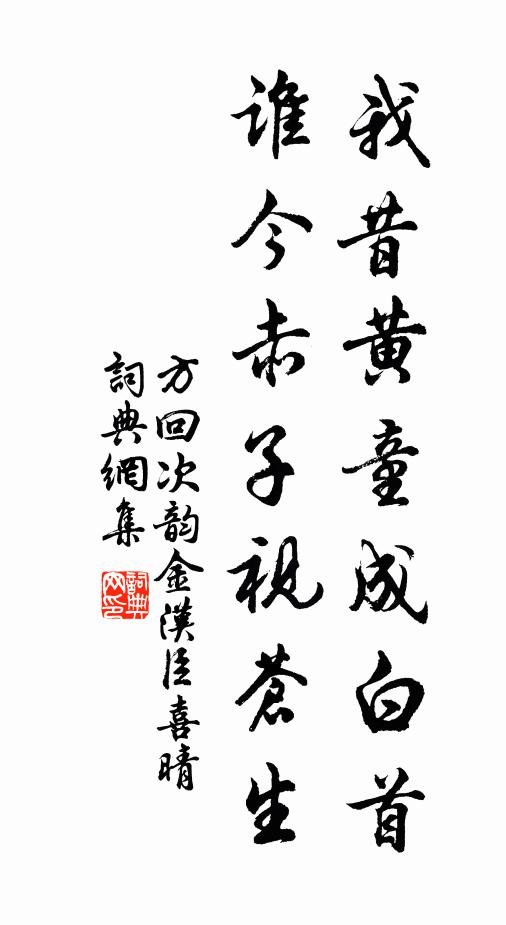 我昔黄童成白首
誰今赤子視蒼生
方回次韵金漢臣喜晴
詞典網集
詞典网印